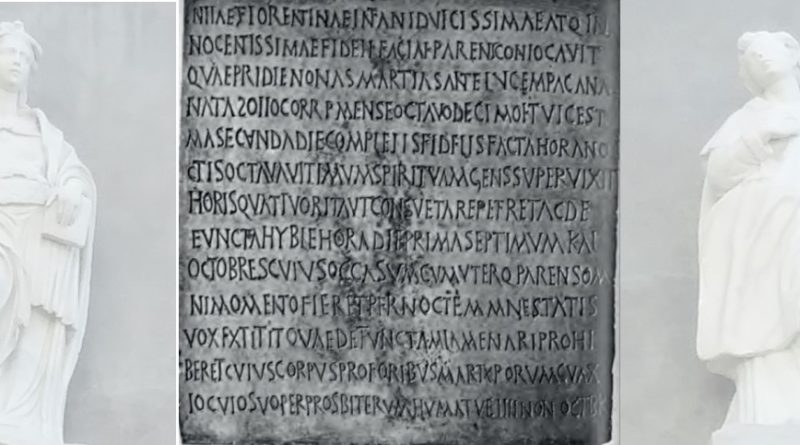 FLORENTINAE INFANTI DVLCISSIMAE ATQ IN
NOCENTISSIMAE FIDELI FACTAE PARENS CONLOCAVIT
QVAE PRIDIE NONAS MARTIAS ANTE LVCEM PACANA
NATA ZOILO CORR P MENSE OCTAVO DECIMO ET VICES
MA SECVNDA DIE COMPLETIS FIDELIS FACTA HORA NO
CTIS OCTAVA VLTIMVM SPIRITVM AGENS SVPERVIXIT
HORIS QVATTVOR ITA VT CONSVETA REPETERET AC DE
FVNCTA HYBLE HORA DIE PRIMA SEPTIMVM KAL
OCTOBRES CVIVS OCCASVM CVM VTERQ PARENS OM
NI MOMENTO FLERET PER NOCTEM
VOX EXTITIT QVAE DEFVNCTAM LAMENARI PROHI
BERET CVIVS CORPVS PRO FORIBVS MARTXPORVM
LOCVLO SVO PER PROSBITERVM HVMATV E IIII NON OCTBR